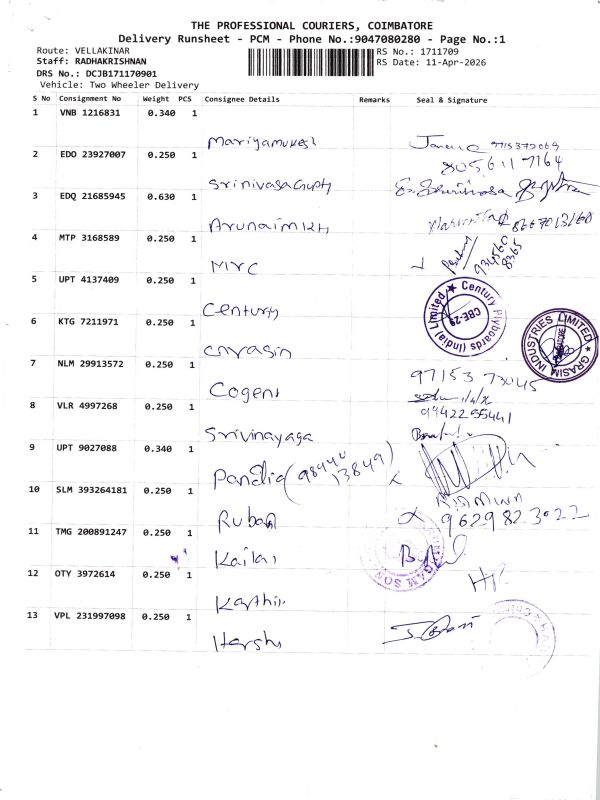 THE PROFESSIONAL COURIERS, COIMBATORE
Delivery Runsheet - PCM - Phone No.:9047080280 - Page No.:1
Route: VELLAKINAR
RS No.: 1711709
Staff: RADHAKRISHNAN
RS Date: 11-Apr-2026
DRS No.: DCJB171170901
Vehicle: Two Wheeler Delivery
S No Consignment No Weight PCS Consignee Details Remarks Seal & Signature
1 VNB 1216831 0.340 1
Mariyamukesh 9715379069
2 EDO 23927007 0.250 1
8056117164
Srinivasa Gupty
3 EDQ 21685945 0.630 1
8667013160
4 MTP 3168589 0.250 1
MYC 934560 8365
5 UPT 4137409 0.250 1
Century
Century Plyboards (India) Limited ★ CBE-29
6 KTG 7211971 0.250 1
Grasim
GRASIM INDUSTRIES LIMITED
7 NLM 29913572 0.250 1
Cogeni 97153 73045
8 VLR 4997268 0.250 1
9942255441
Srivinayaga
9 UPT 9027088 0.340 1
Pandia (98940 13849)
10 SLM 393264181 0.250 1
Ruban 9629823022
11 TMG 200891247 0.250 1
Kailas
12 OTY 3972614 0.250 1
Karthik
13 VPL 231997098 0.250 1
Harshi